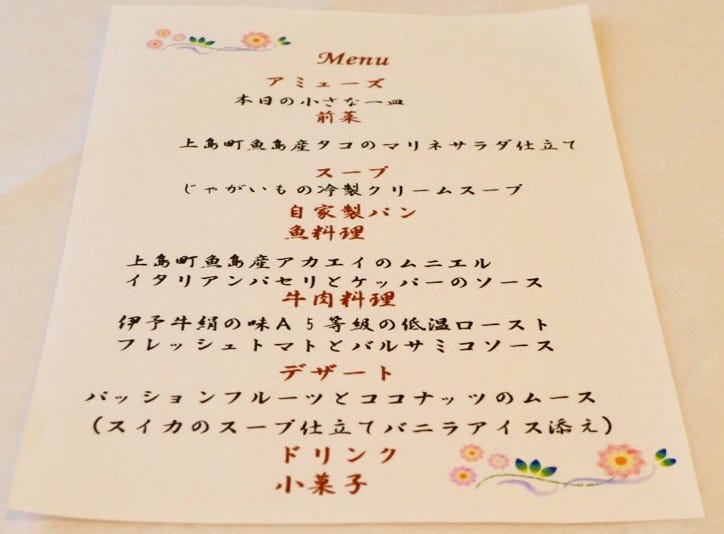 Menu
アミューズ
本日の小さな一皿
前菜
上島町魚島産タコのマリネサラダ仕立て
スープ
じゃがいもの冷製クリームスープ
自家製パン
魚料理
上島町魚島産アカエイのムニエル
イタリアンパセリとケッパーのソース
牛肉料理
伊予牛絹の味A5等級の低温ロースト
フレッシュトマトとバルサミコソース
デザート
パッションフルーツとココナッツのムース
(スイカのスープ仕立てバニラアイス添え)
ドリンク
小菓子